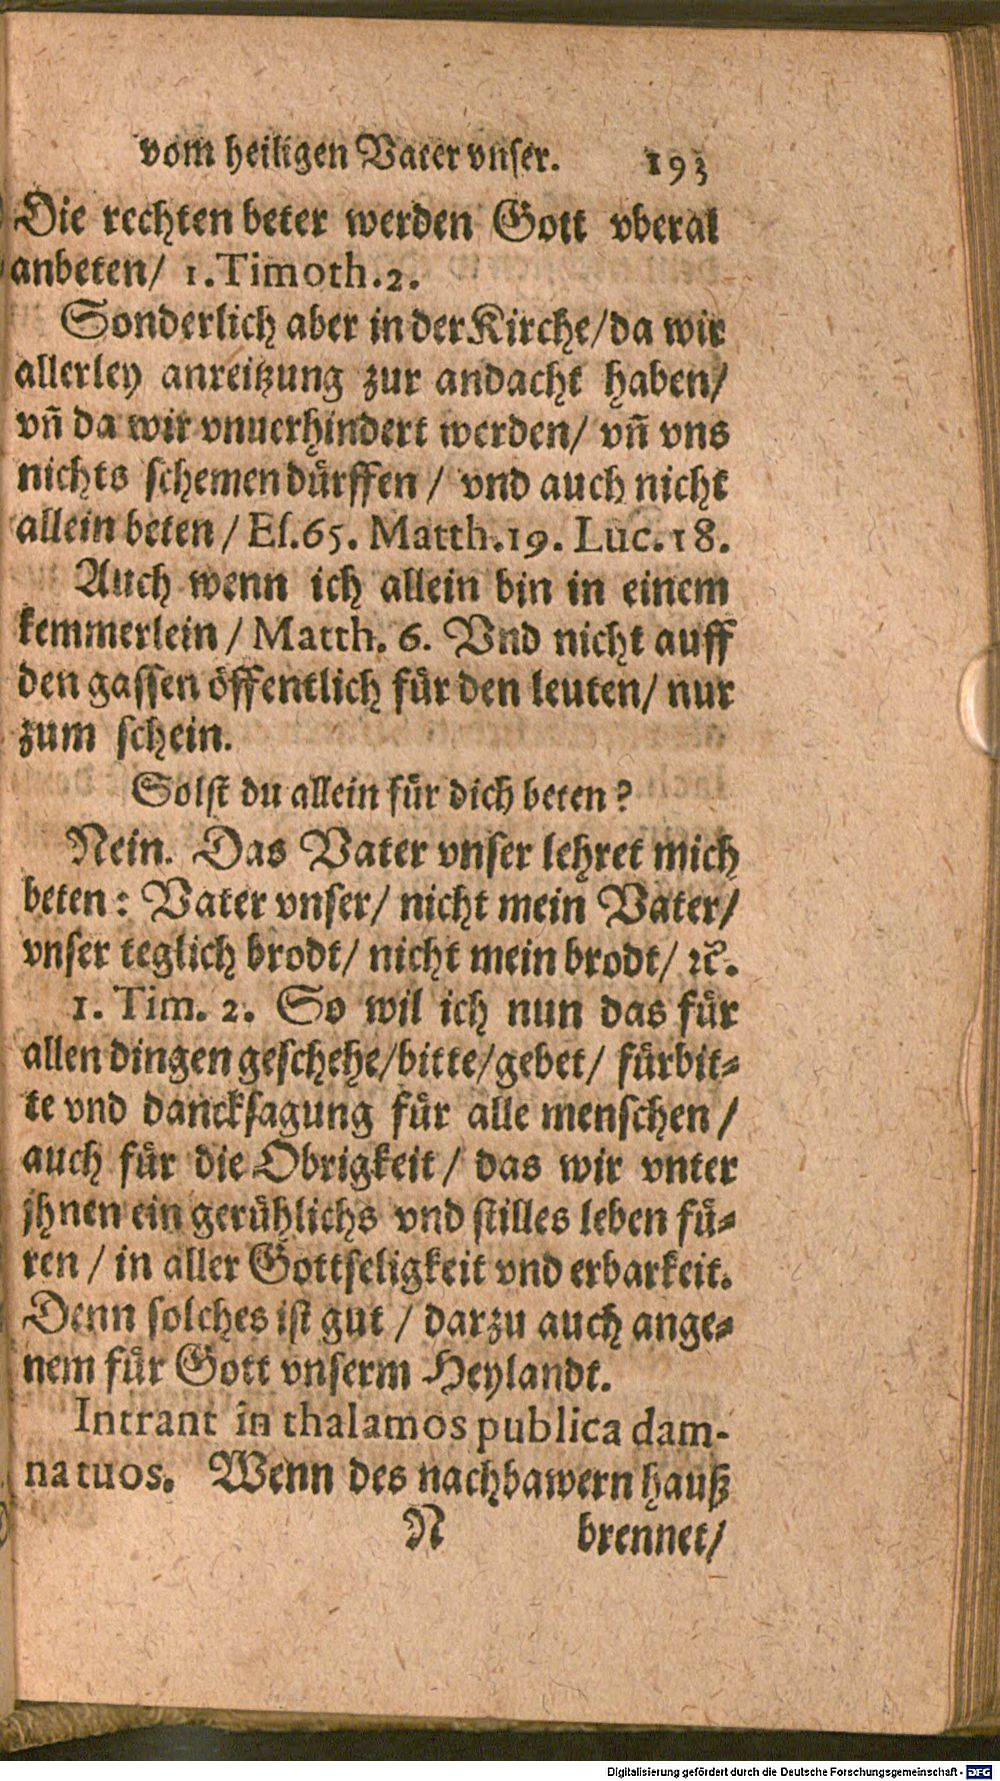 vom heiligen Vater vnser. 193
Die rechten beter werden Gott vberal
anbeten/ 1. Timoth. 2.
Sonderlich aber in der Kirche/ da wir
allerley anreitzung zur andacht haben/
vñ da wir vnuerhindert werden/ vñ vns
nichts schemen dürffen / vnd auch nicht
allein beten / Es. 65. Matth. 19. Luc. 18.
Auch wenn ich allein bin in einem
kemmerlein / Matth. 6. Vnd nicht auff
den gassen öffentlich für den leuten/ nur
zum schein.
Solst du allein für dich beten?
Nein. Das Vater vnser lehret mich
beten: Vater vnser/ nicht mein Vater/
vnser teglich brodt/ nicht mein brodt/ ꝛc.
1. Tim. 2. So wil ich nun das für
allen dingen geschehe/bitte/gebet/ fürbit-
te vnd dancksagung für alle menschen /
auch für die Obrigkeit / das wir vnter
jhnen ein gerühlichs vnd stilles leben fü-
ren / in aller Gottseligkeit vnd erbarkeit.
Denn solches ist gut / darzu auch ange-
nem für Gott vnserm Heylandt.
Intrant in thalamos publica dam-
na tuos. Wenn des nachbawern hauß
N brennet/
Digitalisierung gefördert durch die Deutsche Forschungsgemeinschaft - DFG